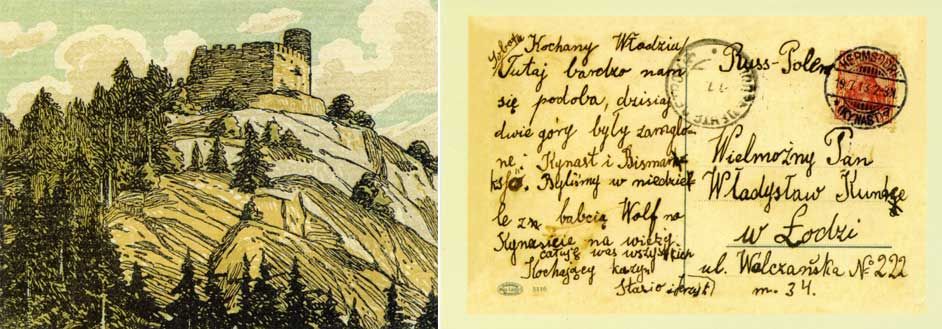 Sobota
Kochany Władziu!
Tutaj bardzo nam
się podoba, dzisiaj
dwie góry były zamglo-
ne: Kynast i Bismark-
Byliśmy w niedziel
le z babcią Wolf na
Kynaście na wieży
całuję was wszystkich
Kochający
Stasio
Russ-Polen
HERMSDORF
(KYNAST)
Wielmożny Pan
Władysław
w Łodzi
ul. Wolczańska № 222
m. 34.